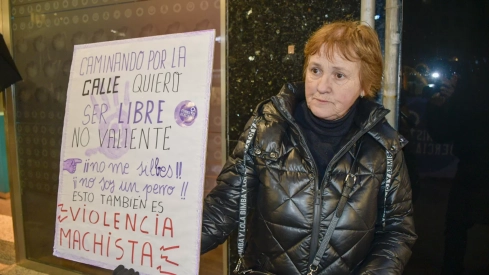 CAMINANDO POR LA
CALLE QUIERO
SER LIBRE
NO VALIENTE
¡¡no me silbes!!
¡no soy un perro!!
ESTO TAMBIÉN ES
VIOLENCIA
MACHISTA
BIMBA Y LOLA BIMBA Y LOLA